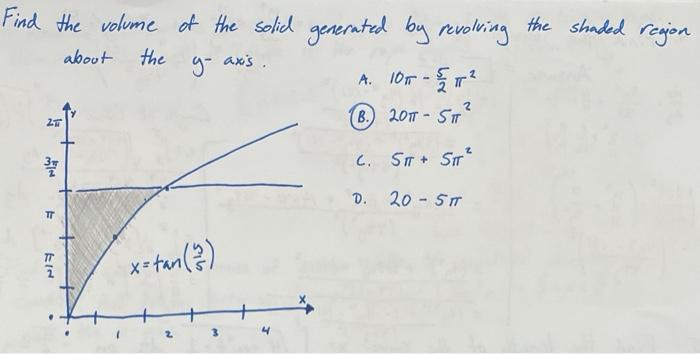 Find the volume of the solid generated by revolving the shaded region
about the y-axis.
A. 10π - 5/2 π²
B. 20π - 5π²
C. 5π + 5π²
D. 20 - 5π
y
2π
3π/2
π
π/2
x = tan(y/5)
x
1 2 3 4